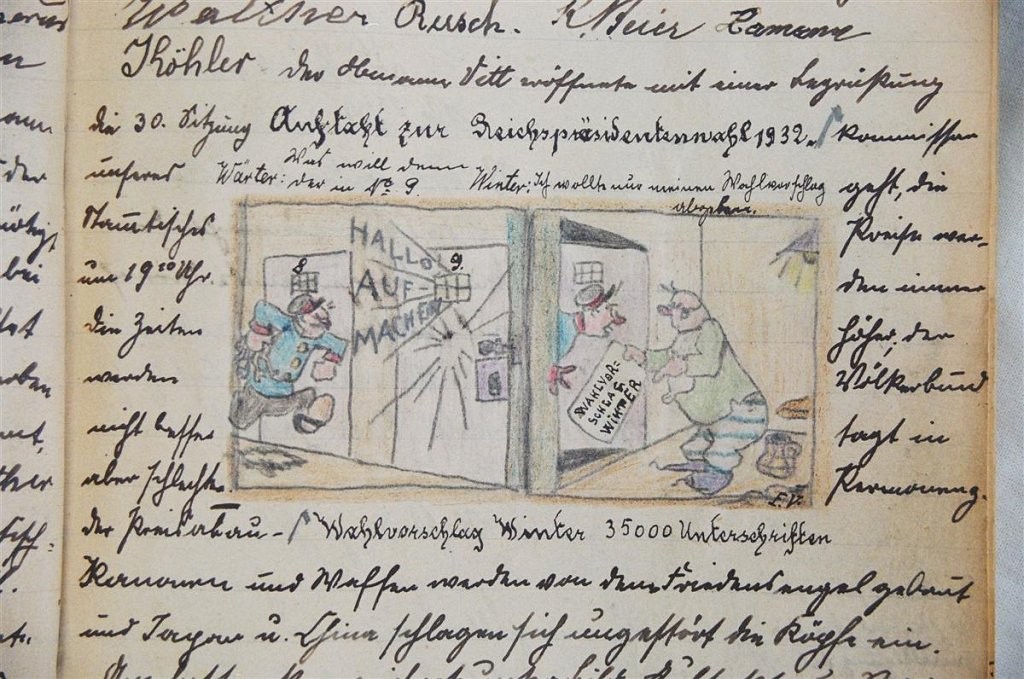 Walther Rusch. K. Beier Lamann
Köhler der Obmann Vitt eröffnete mit einer Begrüßung
die 30. Sitzung
unseres
Stammtisches
um 19²⁰ Uhr.
die Zeiten
werden
nicht besser
aber schlechter.
der Preisabau-
Auftakt zur Reichspräsidentenwahl 1932.
Wärter: Was will denn
der in No 9.
Winter: Ich wollte nur meinen Wahlvorschlag
abgeben.
8
HALLO
AUF-
MACHEN
9.
WAHLVOR=
SCHLAG
WINTER
F.V.
Wahlvorschlag Winter 35000 Unterschriften
kommission
geht, die
Preise wer-
den immer
höher, der
Völkerbund
tagt in
Permanenz.
Kanonen und Waffen werden von dem Friedensengel gebaut
und Japan u. China schlagen sich ungestört die Köpfe ein.